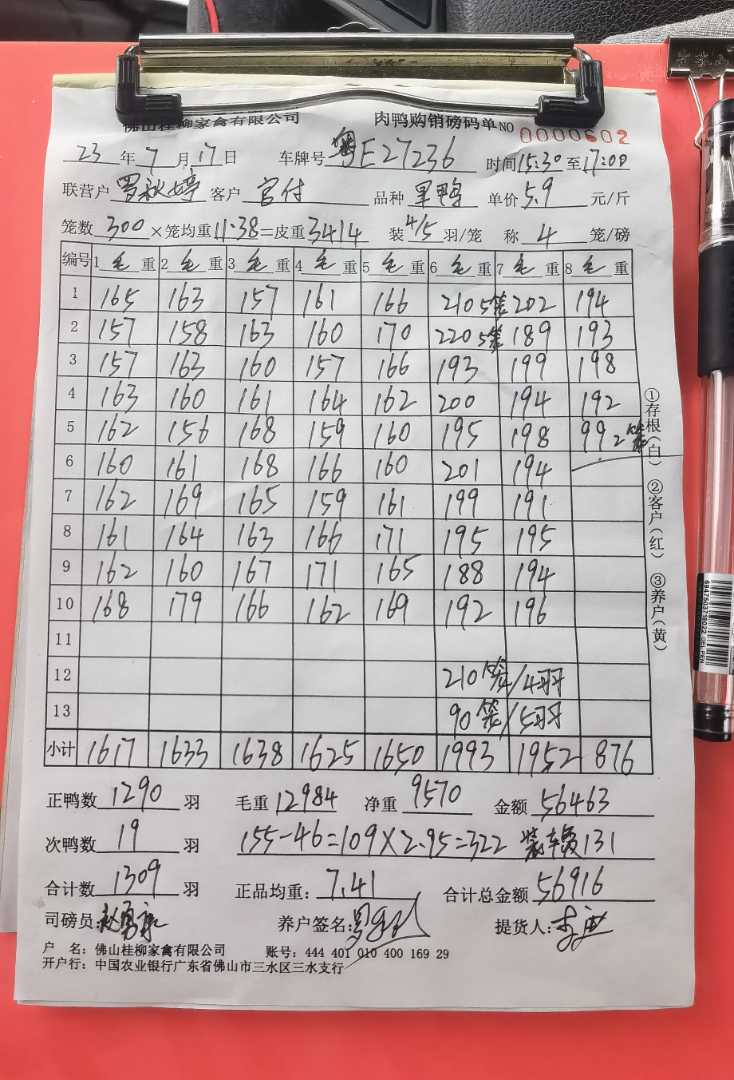 佛山桂柳家禽有限公司 肉鸭购销磅码单 NO 0000602
23年7月17日 车牌号 粤E27236 时间15:30至17:00
联营户 罗秋婷 客户 官付 品种 单价5.9元/斤
笼数300×笼均重11.38=皮重3414 装4/5羽/笼 称4笼/磅
编号 1毛重 2毛重 3毛重 4毛重 5毛重 6毛重 7毛重 8毛重
1 165 163 157 161 166 210 5笼 202 194
2 157 158 163 160 170 220 5笼 189 193
3 157 163 160 157 166 193 199 198
4 163 160 161 164 162 200 194 192
5 162 156 168 159 160 195 198 99 2笼
6 160 161 168 166 160 201 194
7 162 169 165 159 161 199 191
8 161 164 163 166 171 195 195
9 162 160 167 171 165 188 194
10 168 179 166 162 169 192 196
11
12 210笼/4羽
13 90笼/5羽
小计 1617 1633 1638 1625 1650 1993 1952 876
①存根(白) ②客户(红) ③养户(黄)
正鸭数1290羽 毛重12984 净重9570 金额56463
次鸭数19羽 155-46=109×2.95=322 装车费131
合计数1309羽 正品均重:7.41 合计总金额56916
司磅员: 养户签名: 提货人:
户 名:佛山桂柳家禽有限公司 账号:444 401 010 400 169 29
开户行:中国农业银行广东省佛山市三水区三水支行
6947503779022